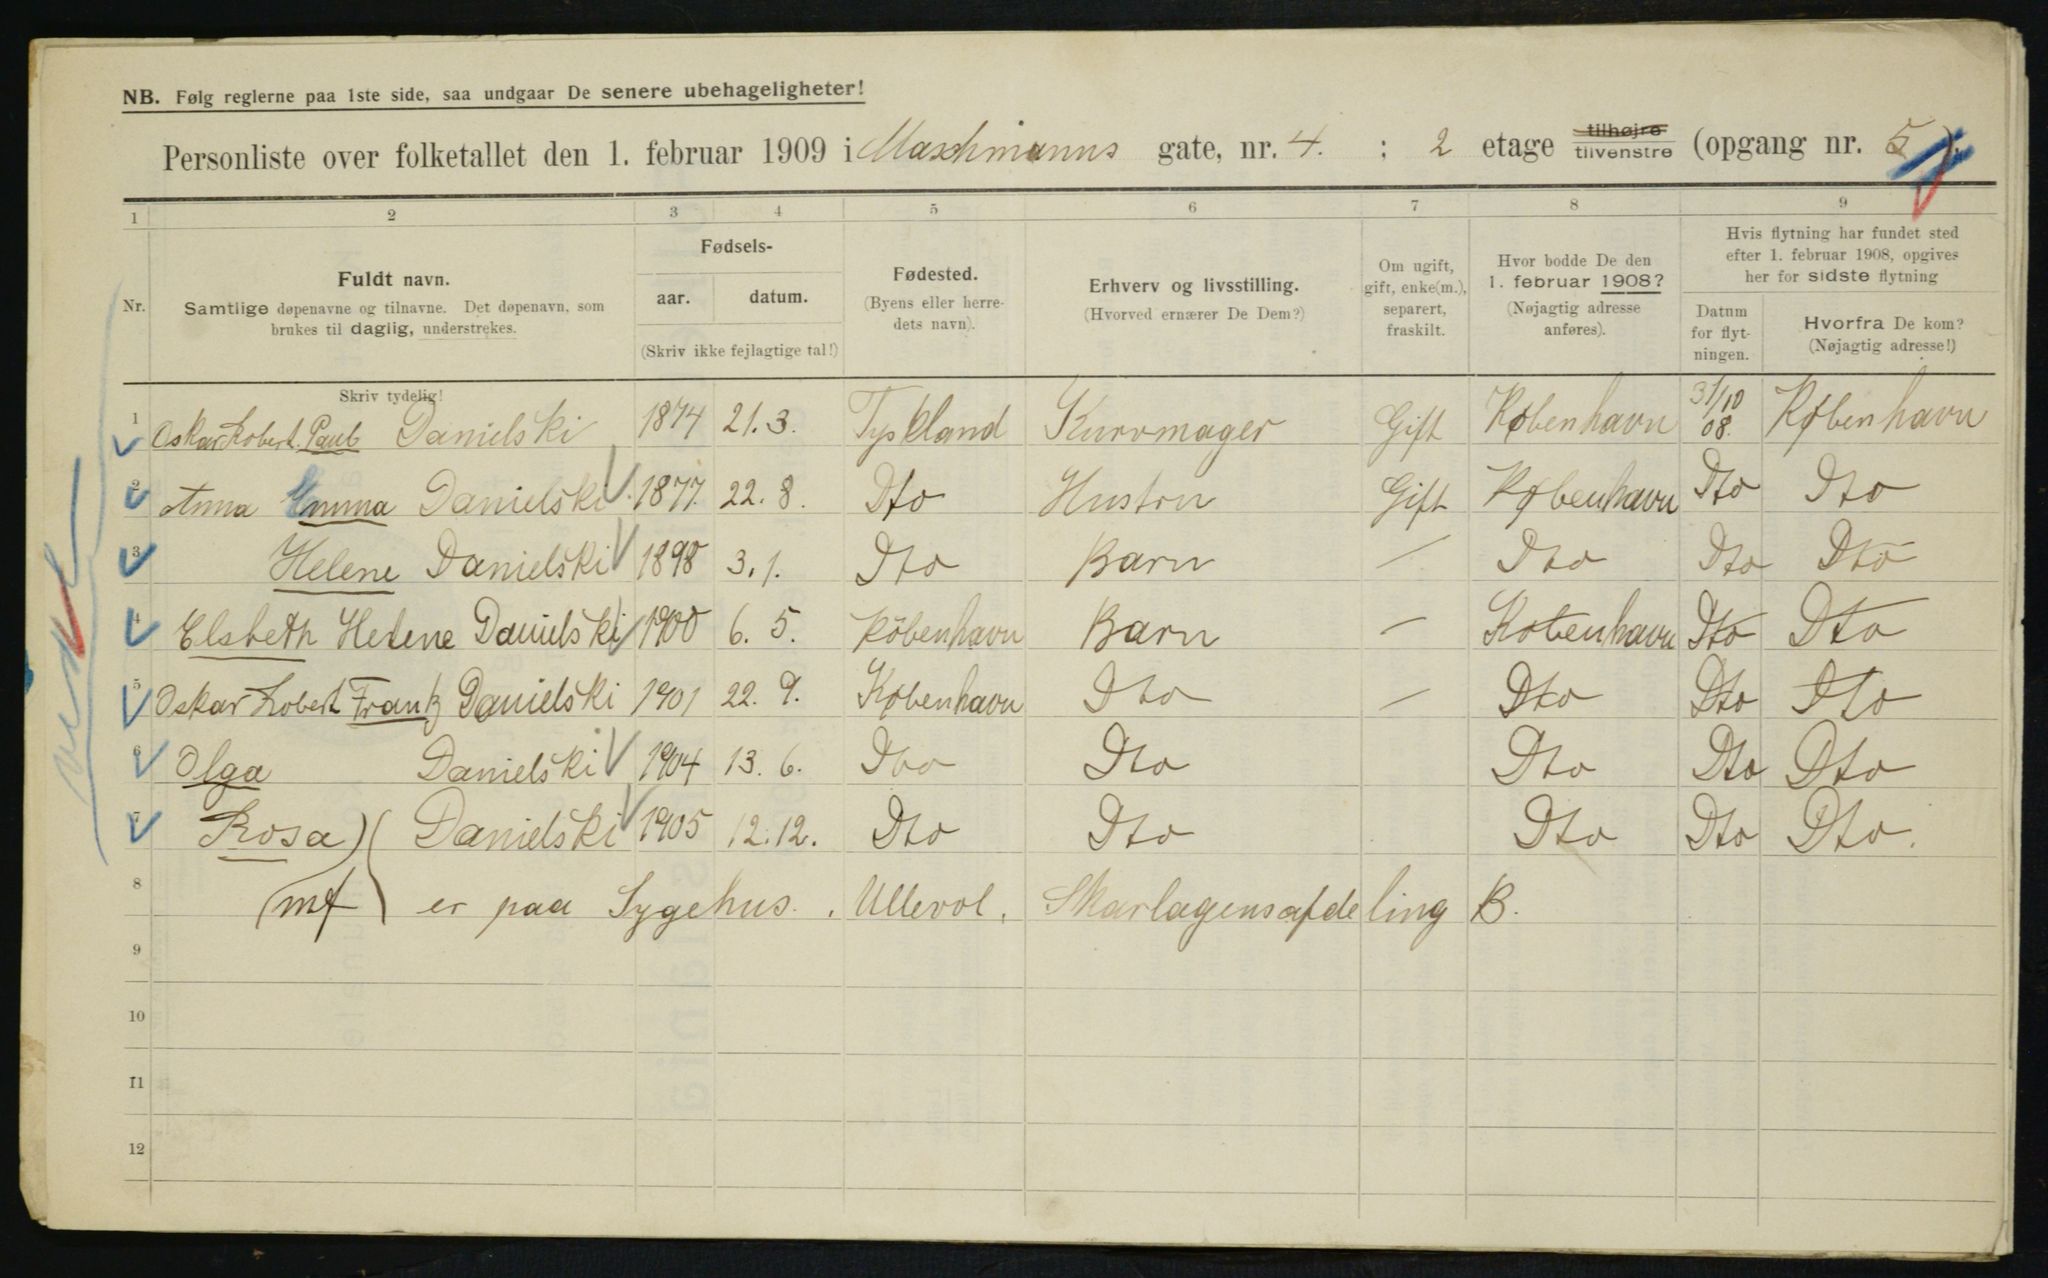 NB. Følg reglerne paa 1ste side, saa undgaar De senere ubehageligheter!
Personliste over folketallet den 1. februar 1909 i Maschmanns gate, nr. 4. : 2 etage tilhøjre tilvenstre (opgang nr. 5).
1 2 3 4 5 6 7 8 9
Nr.
Fuldt navn.
Samtlige døpenavne og tilnavne. Det døpenavn, som
brukes til daglig, understrekes.
Fødsels-
aar. datum.
(Skriv ikke fejlagtige tal!)
Fødested.
(Byens eller herre-
dets navn).
Erhverv og livsstilling.
(Hvorved ernærer De Dem?)
Om ugift,
gift, enke(m.),
separert,
fraskilt.
Hvor bodde De den
1. februar 1908?
(Nøjagtig adresse
anføres).
Hvis flytning har fundet sted
efter 1. februar 1908, opgives
her for sidste flytning
Datum
for flyt-
ningen.
Hvorfra De kom?
(Nøjagtig adresse!)
Skriv tydelig!
1 Oskar Robert Paul Danielski 1874 21.3. Tyskland Kurvmager Gift København 31/10 08. København
2 Anna Emma Danielski 1877. 22.8. Dto Hustru Gift København Dto Dto
3 Helene Danielski 1898 3.1. Dto Barn — Dto Dto Dto
4 Elsbeth Helene Danielski 1900 6.5. København Barn — København Dto Dto
5 Oskar Robert Frantz Danielski 1901 22.9. København Dto — Dto Dto Dto
6 Olga Danielski 1904 13.6. Dto Dto Dto Dto Dto
7 Rosa )( Danielski 1905 12.12. Dto Dto Dto Dto Dto.
8 (mf ( er paa Sygehus. . Ullevol. Skarlagensafdeling B.
9
10
11
12